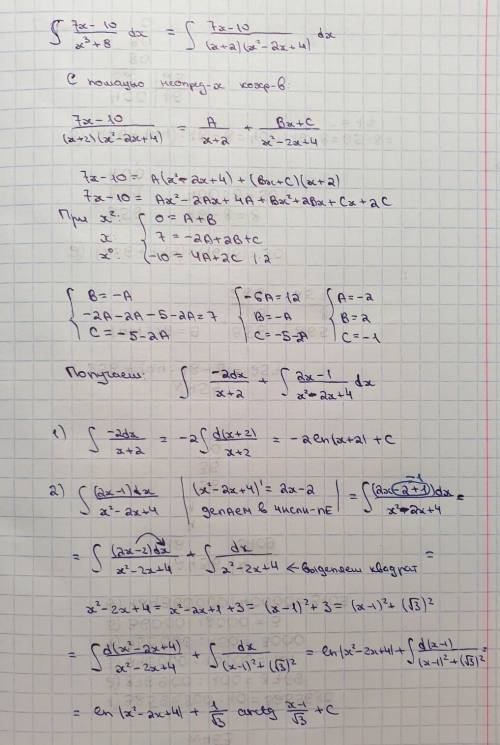 ∫ (7x-10)/(x³+8) dx = ∫ (7x-10)/((x+2)(x²-2x+4)) dx
С помощью неопред-х коэф-в:
(7x-10)/((x+2)(x²-2x+4)) = A/(x+2) + (Bx+C)/(x²-2x+4)
7x-10 = A(x²-2x+4) + (Bx+C)(x+2)
7x-10 = Ax²-2Ax+4A+Bx²+2Bx+Cx+2C
При x²: { 0=A+B
x { 7=-2A+2B+C
x⁰ { -10=4A+2C |:2
{ B=-A { -6A=12 { A=-2
{ -2A-2A-5-2A=7 { B=-A { B=2
{ C=-5-2A { C=-5-2A { C=-1
Получаем: ∫ -2dx/(x+2) + ∫ (2x-1)/(x²-2x+4) dx
1) ∫ -2dx/(x+2) = -2∫ d(x+2)/(x+2) = -2ln|x+2| + C
2) ∫ (2x-1)dx/(x²-2x+4) | (x²-2x+4)' = 2x-2 делаем в числи-ле | = ∫ (2x-2+1)dx/(x²-2x+4) =
-1
= ∫ (2x-2)dx/(x²-2x+4) + ∫ dx/(x²-2x+4) ← выделяем квадрат =
x²-2x+4 = x²-2x+1+3 = (x-1)²+3 = (x-1)²+(√3)²
= ∫ d(x²-2x+4)/(x²-2x+4) + ∫ dx/((x-1)²+(√3)²) = ln|x²-2x+4| + ∫ d(x-1)/((x-1)²+(√3)²) =
= ln|x²-2x+4| + 1/√3 arctg (x-1)/√3 + C